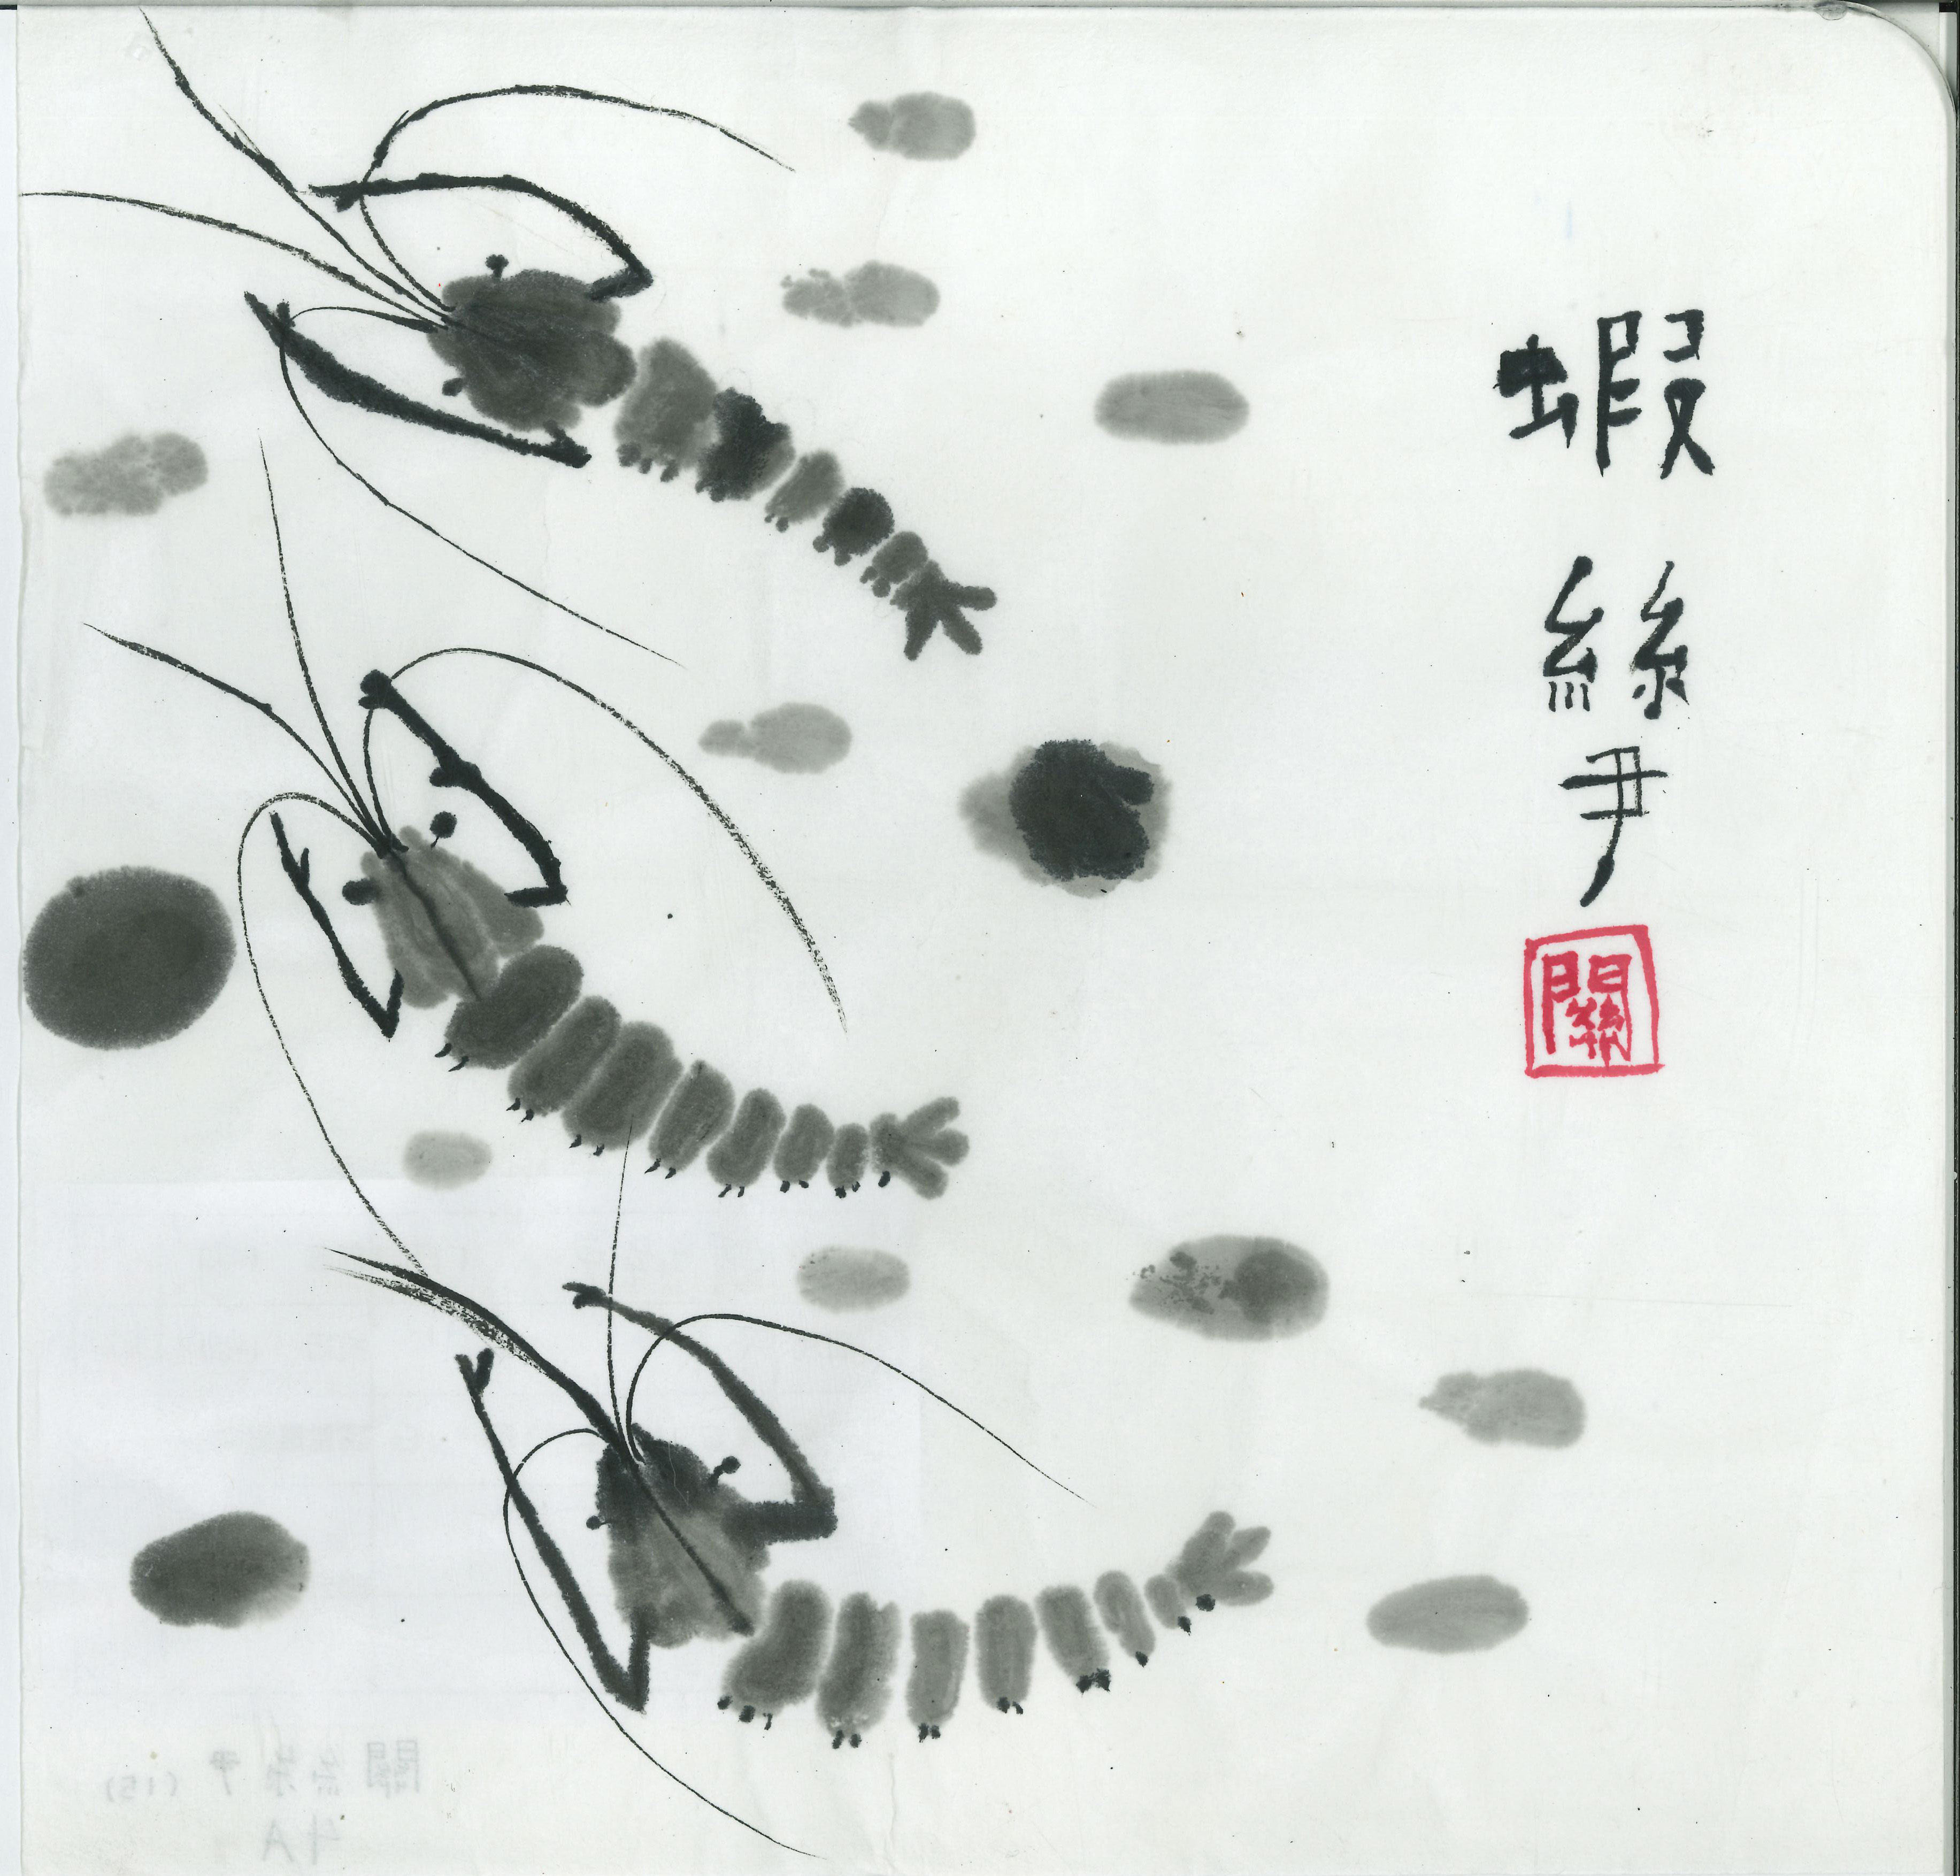 蝦
絲尹
關
關絲尹 (15)
4A